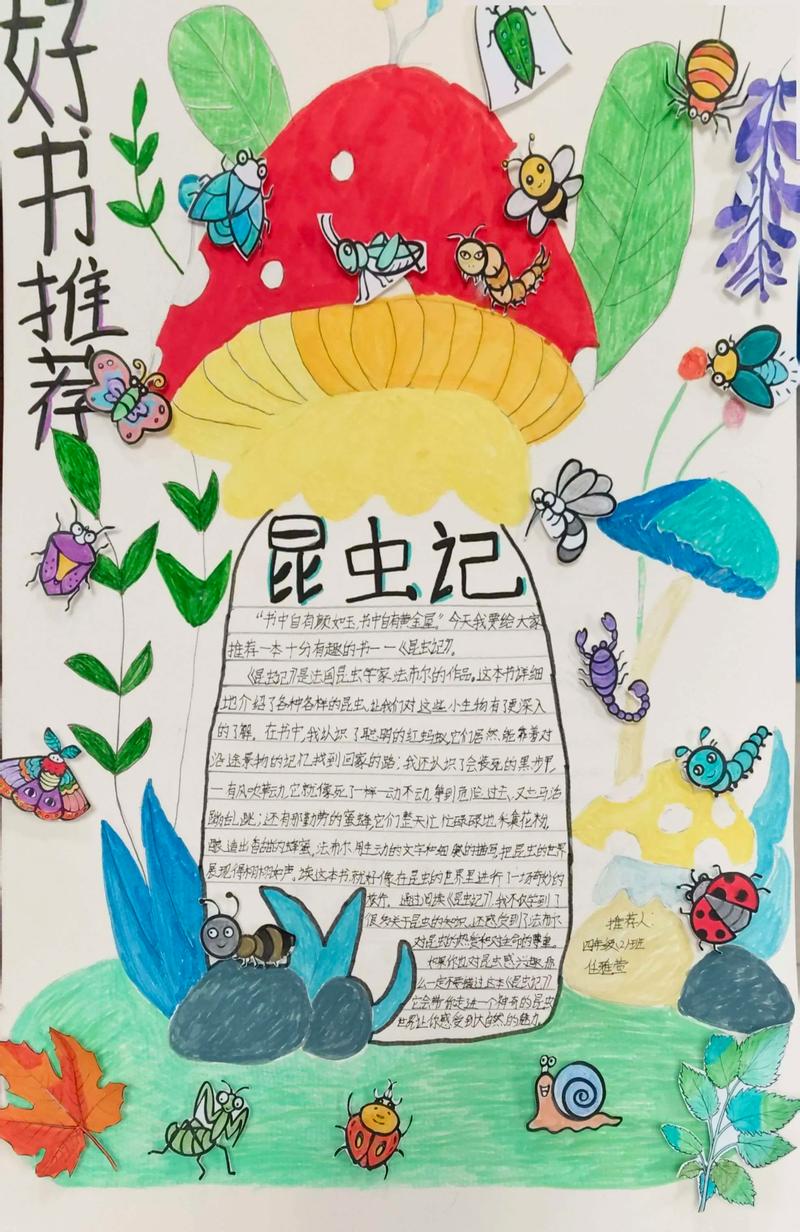 好书推荐
昆虫记
“书中自有颜如玉,书中自有黄金屋。”今天我要给大家
推荐一本十分有趣的书——《昆虫记》。
《昆虫记》是法国昆虫学家法布尔的作品。这本书详细
地介绍了各种各样的昆虫,让我们对这些小生物有了更深入
的了解。在书中,我认识了聪明的红蚂蚁,它们居然能靠着对
沿途景物的记忆,找到回家的路;我还认识了会装死的黑步甲,
一有风吹草动,它就像死了一样一动不动,等到危险过去,又立马活
蹦乱跳;还有那勤劳的蜜蜂,它们整天忙忙碌碌地采集花粉,
酿造出香甜的蜂蜜。法布尔用生动的文字和细腻的描写,把昆虫的世界
展现得栩栩如声。读这本书,就好像在昆虫的世界里进行了一场奇妙的
旅行。通过阅读《昆虫记》,我不仅学到了
很多关于昆虫的知识,还感受到了法布尔
对昆虫的热爱和对生命的尊重。
如果你也对昆虫感兴趣,那
么一定不要错过这本《昆虫记》,
它会带你走进一个神奇的昆虫
世界,让你感受到大自然的魅力。
推荐人:
四年级(2)班